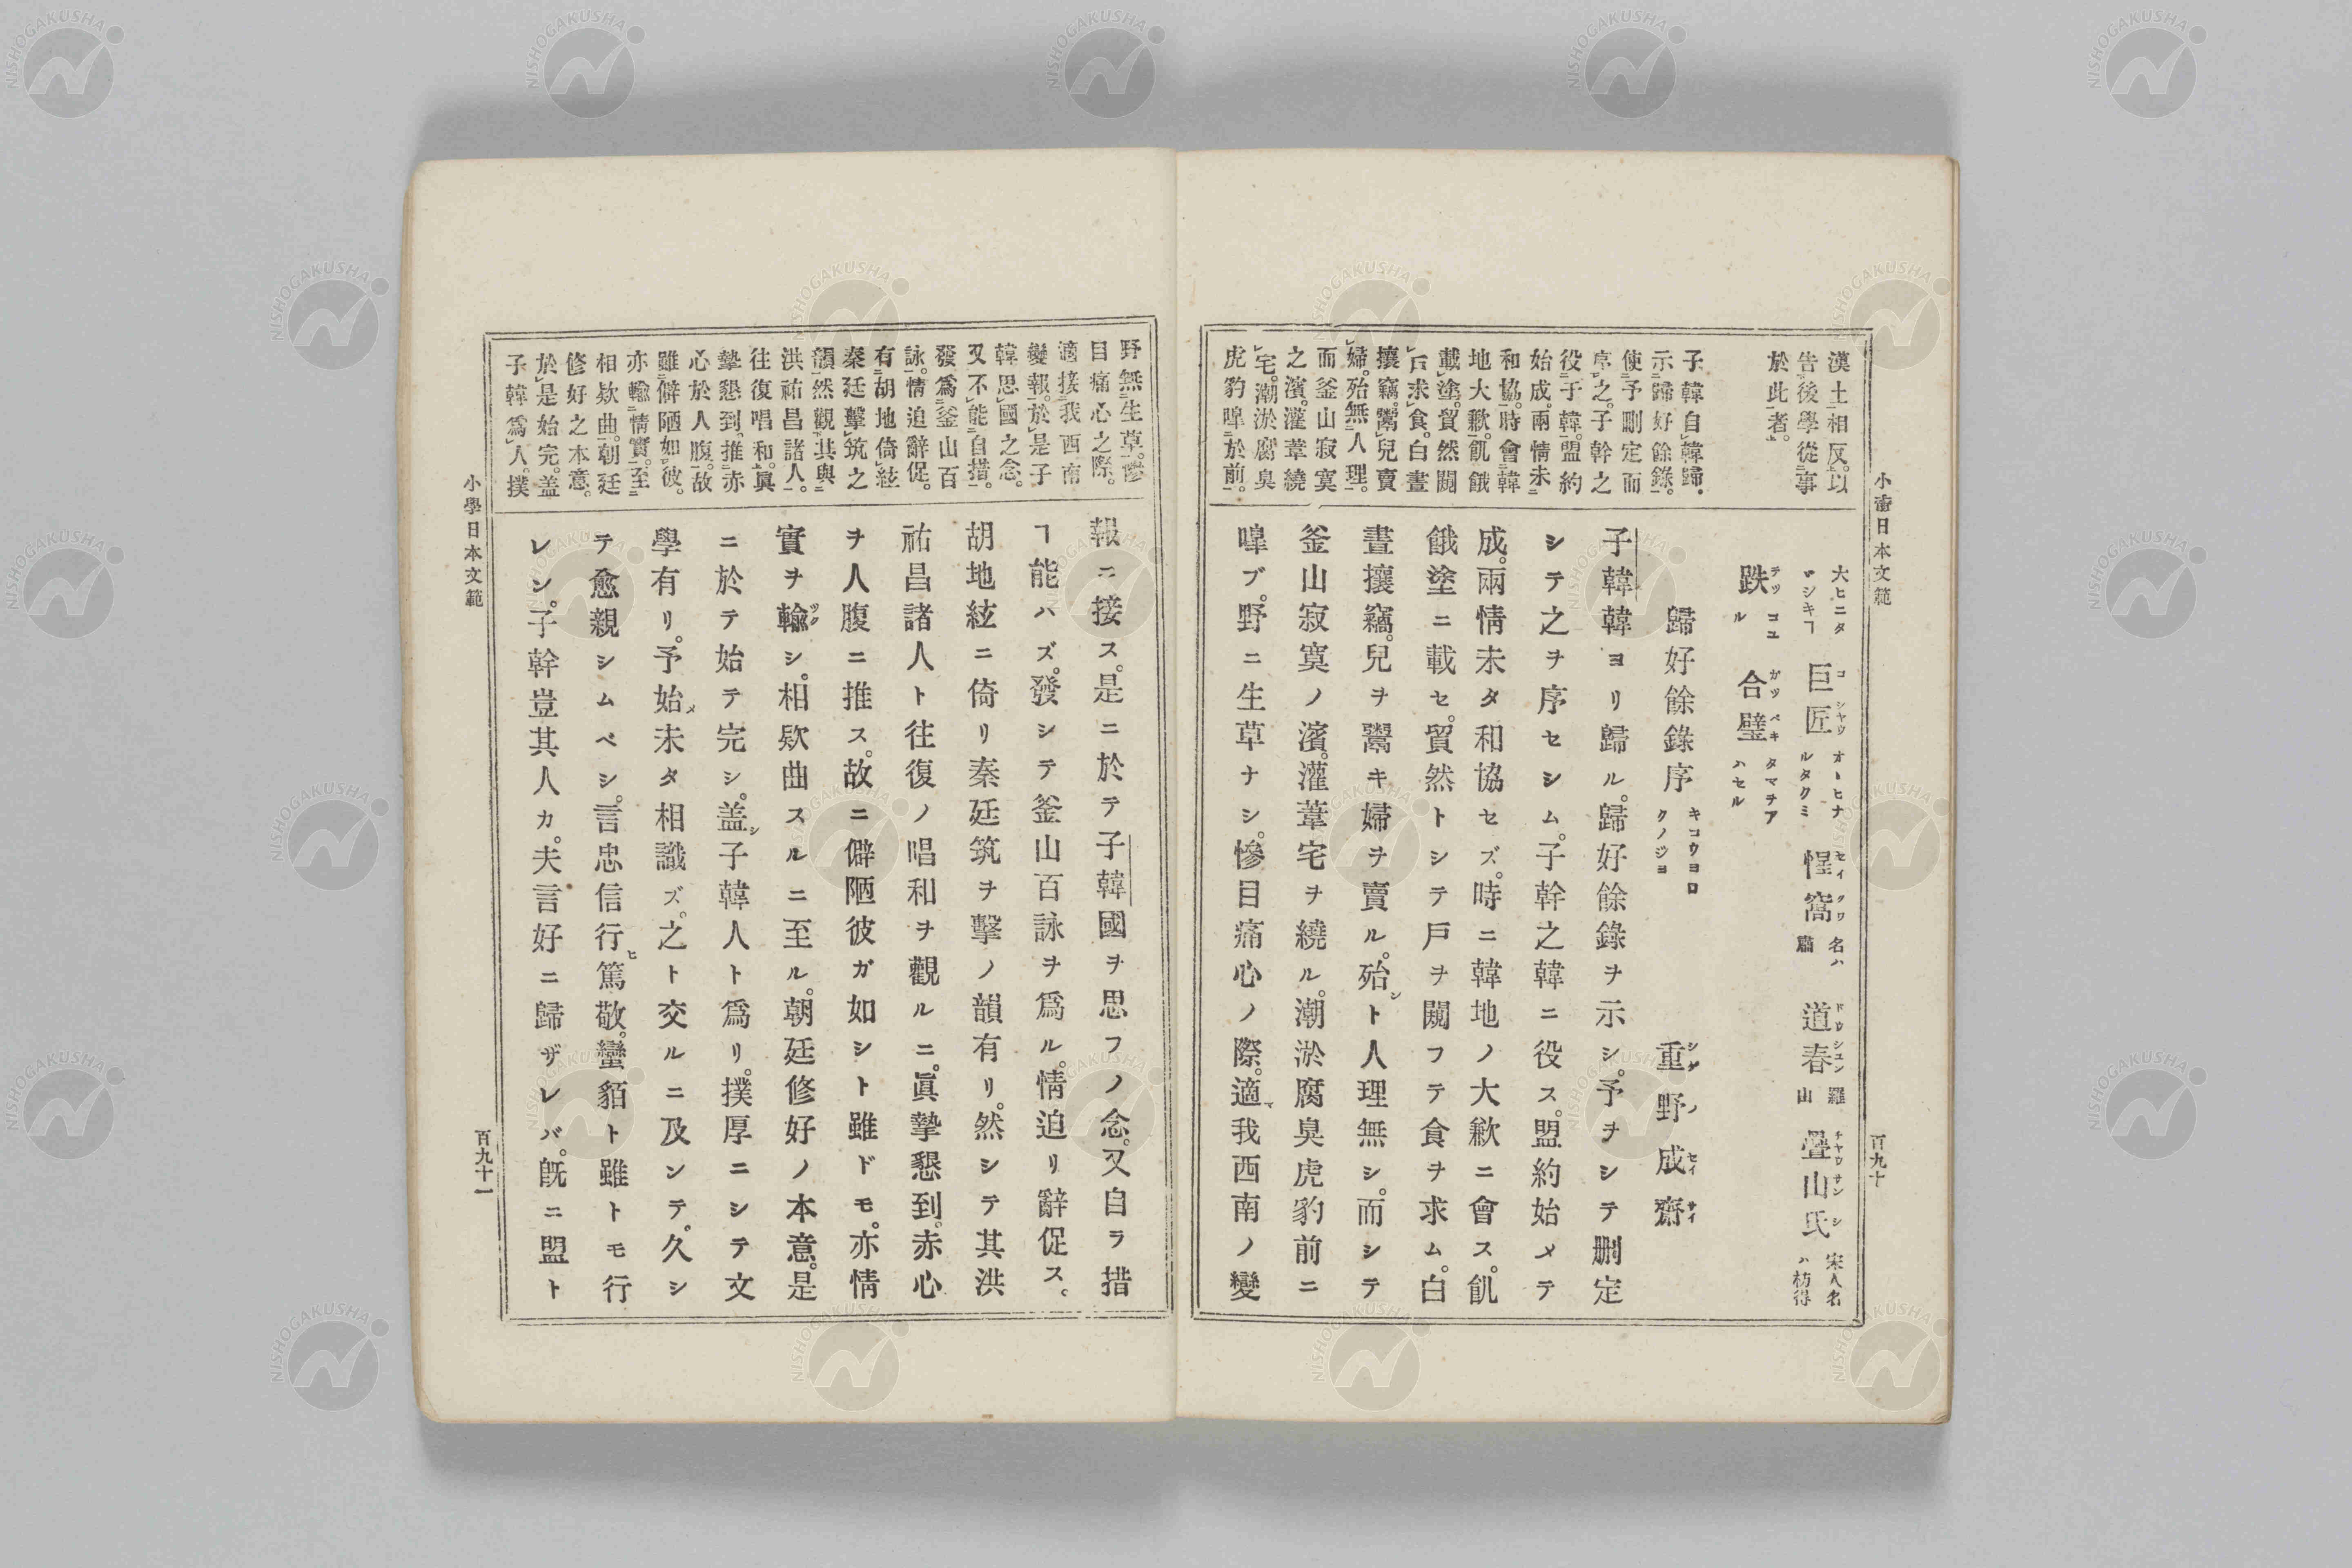 小學日本文範
百九十
漢土相反。以
告後學從事
於此者。
子韓自韓歸。
示歸好餘錄。
使予刪定而
序之。子幹之
役于韓。盟約
始成。兩情未
和協。時會韓
地大歉。飢餓
載塗。貿然闖
戶求食。白晝
攘竊。鬻兒賣
婦。殆無人理。
而釜山寂寞
之濱。灌葦繞
宅。潮淤腐臭
虎豹嘷於前。
大ヒニタヾシキヿ 巨匠 コシヤウ オヽヒナルタクミ 惺窩 セイクワ 名ハ肅 道春 ドウシユン 羅山 疊山氏 チヤウサンシ 宋人名ハ枋得
跌 テツ コユル 合璧 ガツペキ タマヲアハセル
歸好餘錄序 キコウヨロクノジヨ 重野成齋 シゲノセイサイ
子韓韓ヨリ歸ル。歸好餘錄ヲ示シ。予ヲシテ刪定
シテ之ヲ序セシム。子幹之韓ニ役ス。盟約始メテ
成。兩情未タ和協セズ。時ニ韓地ノ大歉ニ會ス。飢
餓塗ニ載セ。貿然トシテ戶ヲ闖フテ食ヲ求ム。白
晝攘竊。兒ヲ鬻キ婦ヲ賣ル。殆ント人理無シ。而シテ
釜山寂寞ノ濱。灌葦宅ヲ繞ル。潮淤腐臭虎豹前ニ
嘷ブ。野ニ生草ナシ。慘目痛心ノ際。適マ我西南ノ變
小學日本文範
百九十一
野無生草。慘
目痛心之際。
適接我西南
變報。於是子
韓思國之念。
又不能自措。
發爲釜山百
詠。情迫辭促。
有胡地倚絃
秦廷擊筑之
韻。然觀其與
洪祐昌諸人。
往復唱和。眞
摯懇到。推赤
心於人腹。故
雖僻陋如彼。
亦輸情實。至
相欵曲。朝廷
修好之本意。
於是始完。盖
子韓爲人。撲
報ニ接ス。是ニ於テ子韓國ヲ思フノ念。又自ラ措
ヿ能ハズ。發シテ釜山百詠ヲ爲ル。情迫リ辭促ス。
胡地絃ニ倚リ秦廷筑ヲ擊ノ韻有リ。然シテ其洪
祐昌諸人ト往復ノ唱和ヲ觀ルニ。眞摯懇到。赤心
ヲ人腹ニ推ス。故ニ僻陋彼ガ如シト雖ドモ。亦情
實ヲ輸シ。相欵曲スルニ至ル。朝廷修好ノ本意。是
ニ於テ始テ完シ。盖シ子韓人ト爲リ。撲厚ニシテ文
學有リ。予始メ未タ相識ズ。之ト交ルニ及ンテ。久シ
テ愈親シムベシ。言忠信行ヒ篤敬。蠻貊ト雖トモ行
レン。子幹豈其人カ。夫言好ニ歸ザレバ。旣ニ盟ト